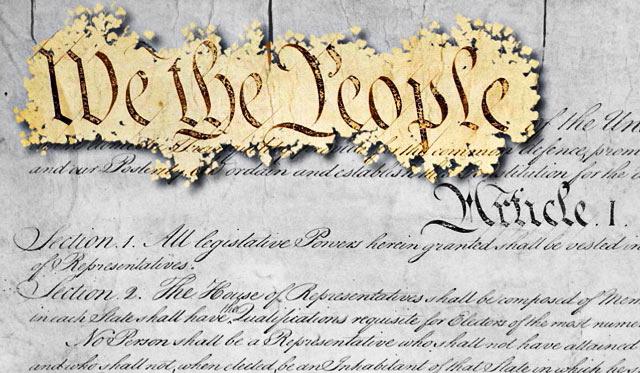 We the People
of the Un
defence, prom
and our Poster ordain and establish titution for the
Article. I.
Section. 1. All legislative Powers herein granted shall be vested in
of Representatives.
Section. 2. The House of Representatives shall be composed of Mem
in each State shall have the Qualifications requisite for Electors of the most nume
No Person shall be a Representative who shall not have attained
and who shall not, when elected, be an Inhabitant of that State in which he s